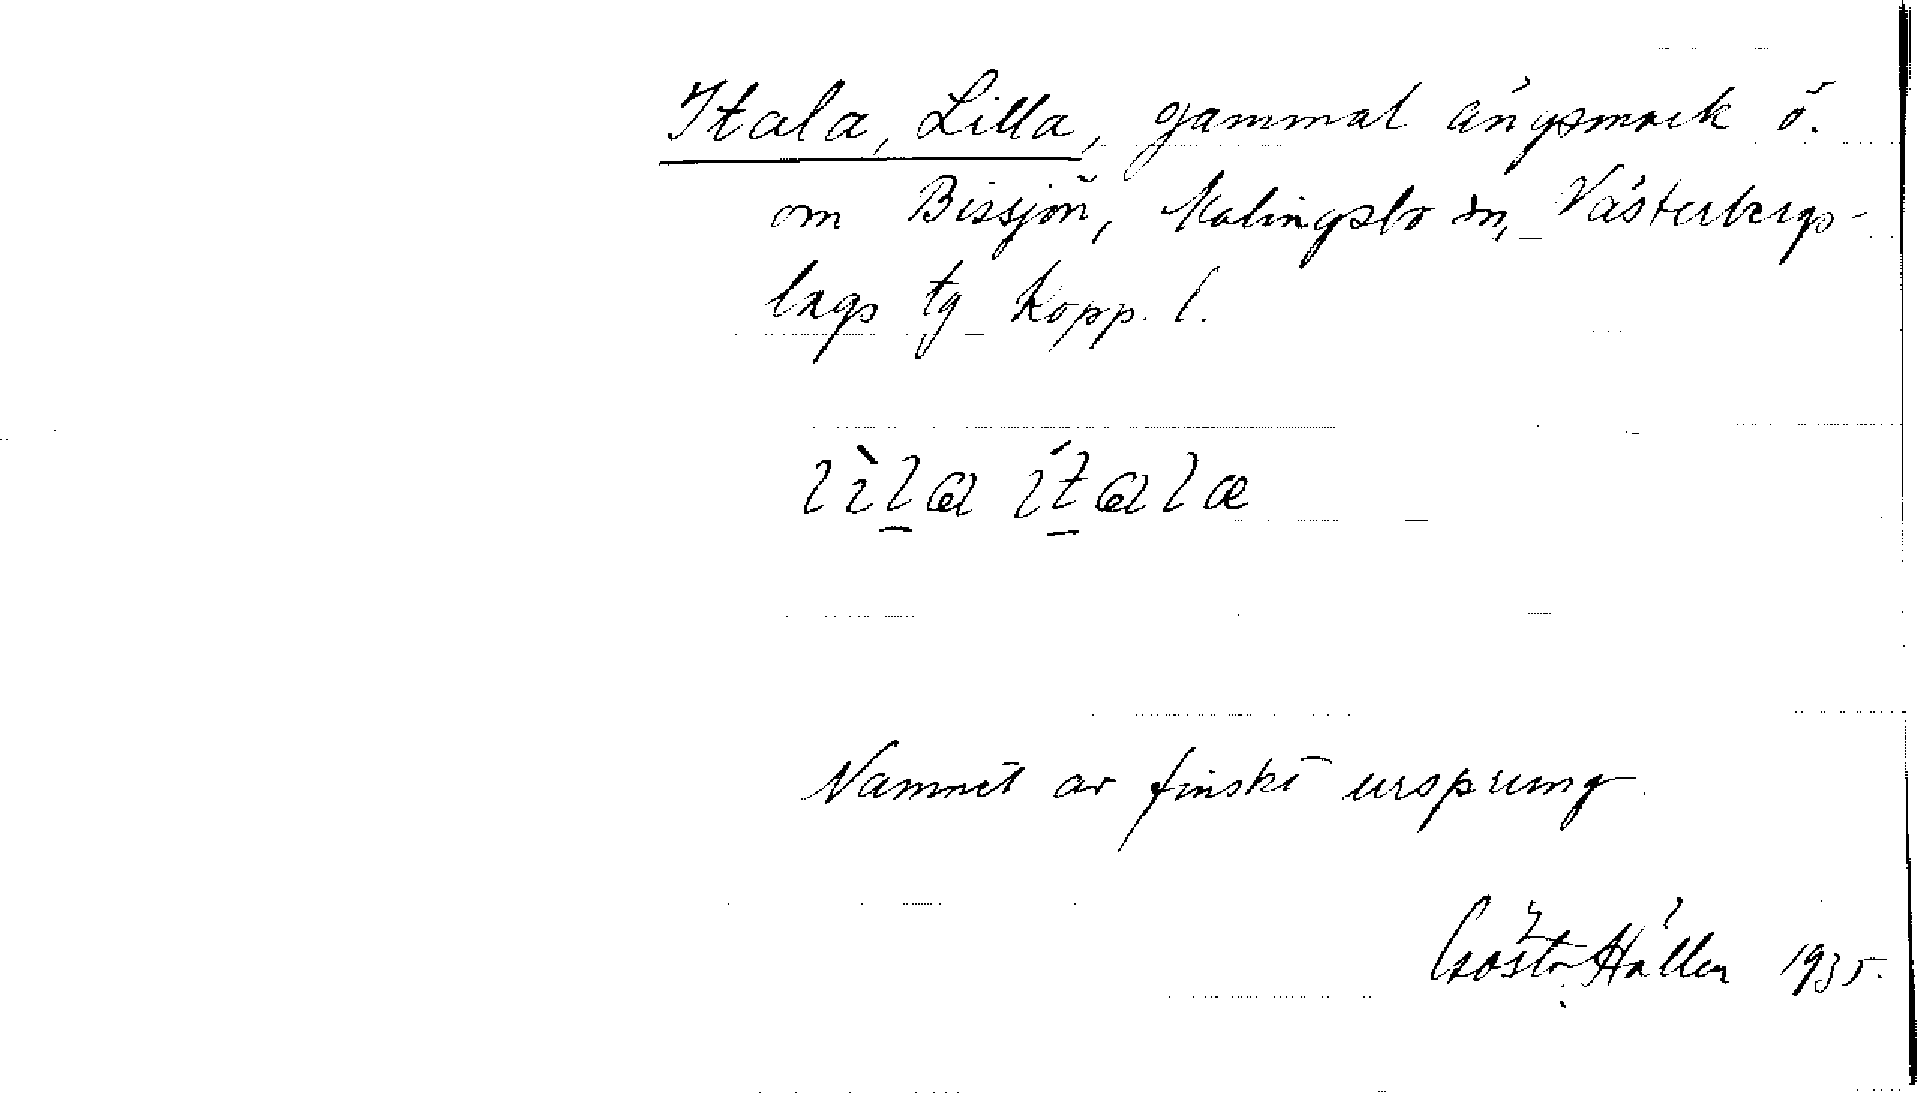 Itala, Lilla, gammal ängsmark ö.
om Bissjön, Malingsbo sn, Västerbergs-
lags tg Kopp. l.
lìl̠a ít̠ala
Namnet av finskt ursprung.
Gösta Hållen 1935.